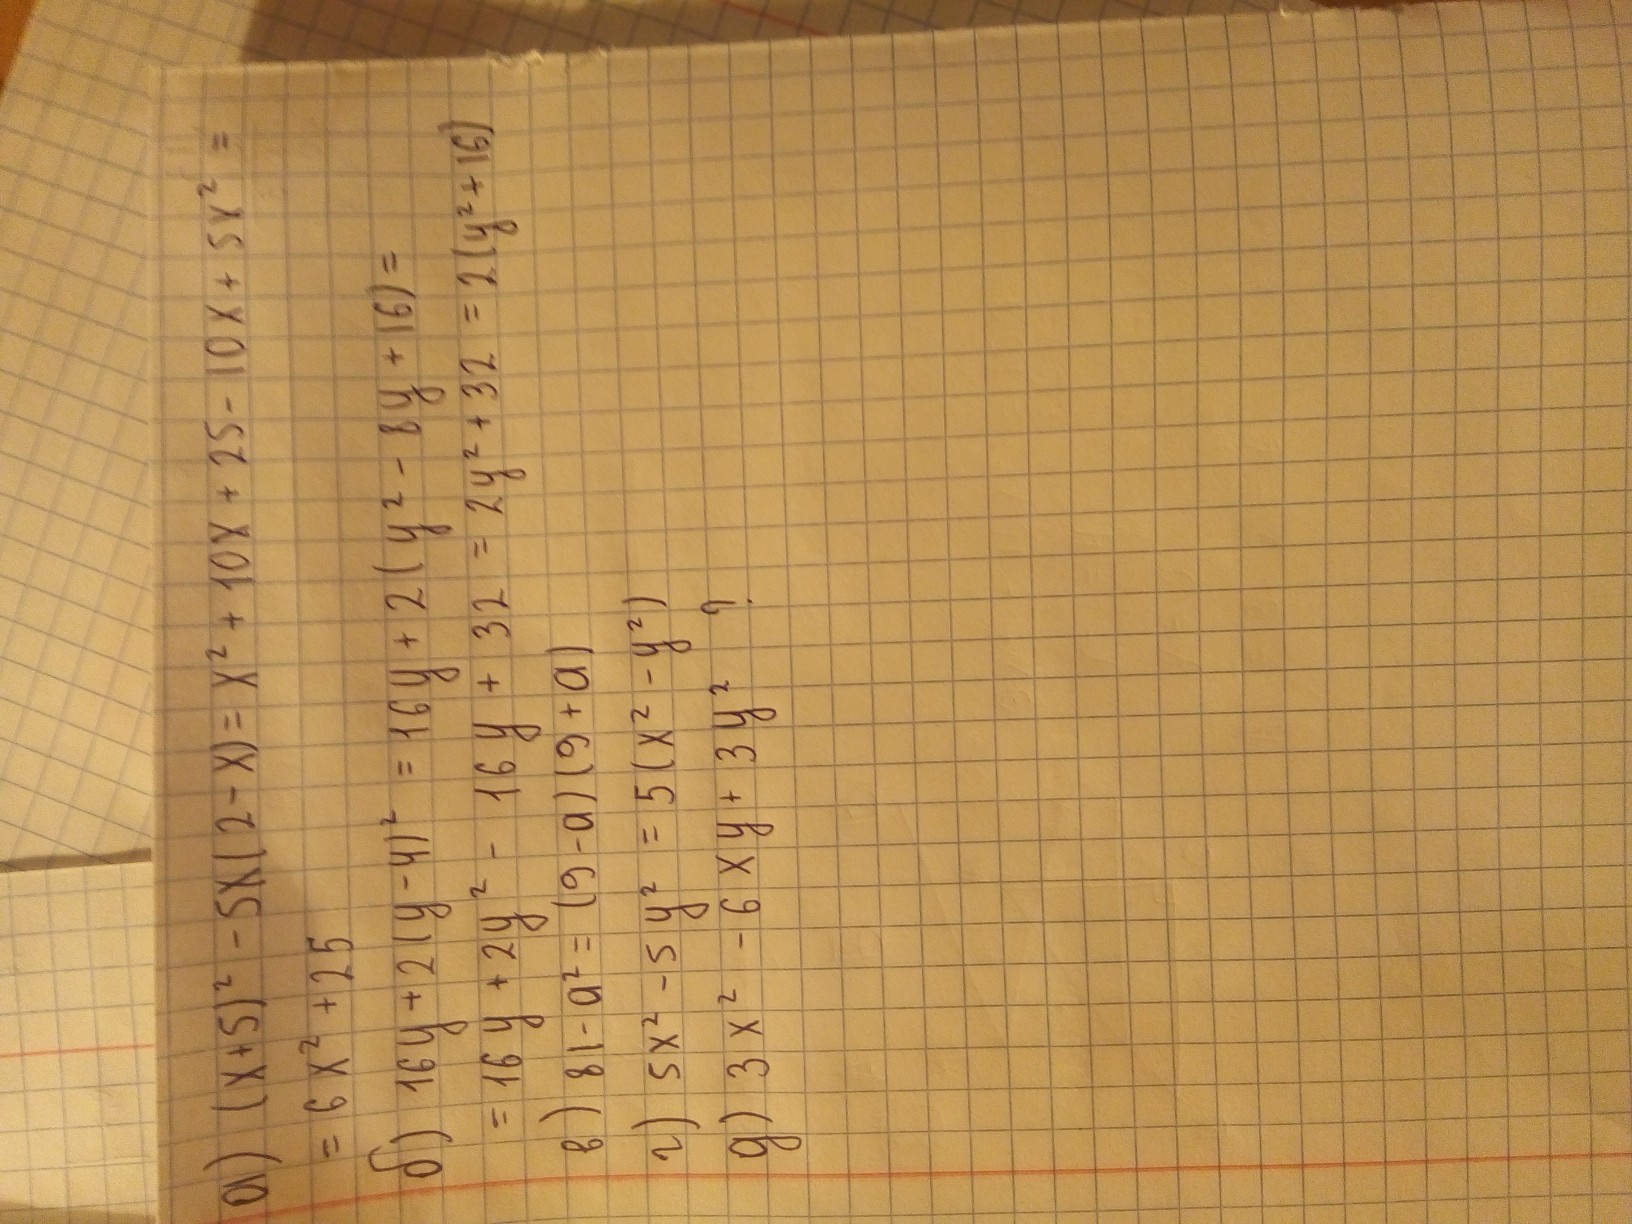 а) (x+5)² - 5x(2-x) = x² + 10x + 25 - 10x + 5x² =
= 6x² + 25
б) 16y + 2(y-4)² = 16y + 2(y² - 8y + 16) =
= 16y + 2y² - 16y + 32 = 2y² + 32 = 2(y² + 16)
в) 81 - a² = (9 - a)(9 + a)
г) 5x² - 5y² = 5(x² - y²)
д) 3x² - 6xy + 3y² ?